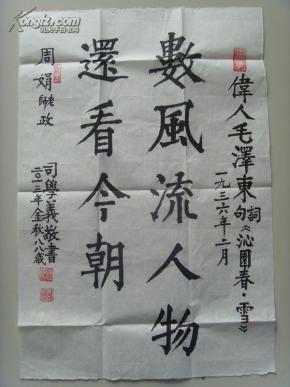 偉人毛澤東詞句《沁園春·雪》
一九三六年二月
數風流人物
還看今朝
周娟師政
司學義敬書
二〇一三年金秋八八歲